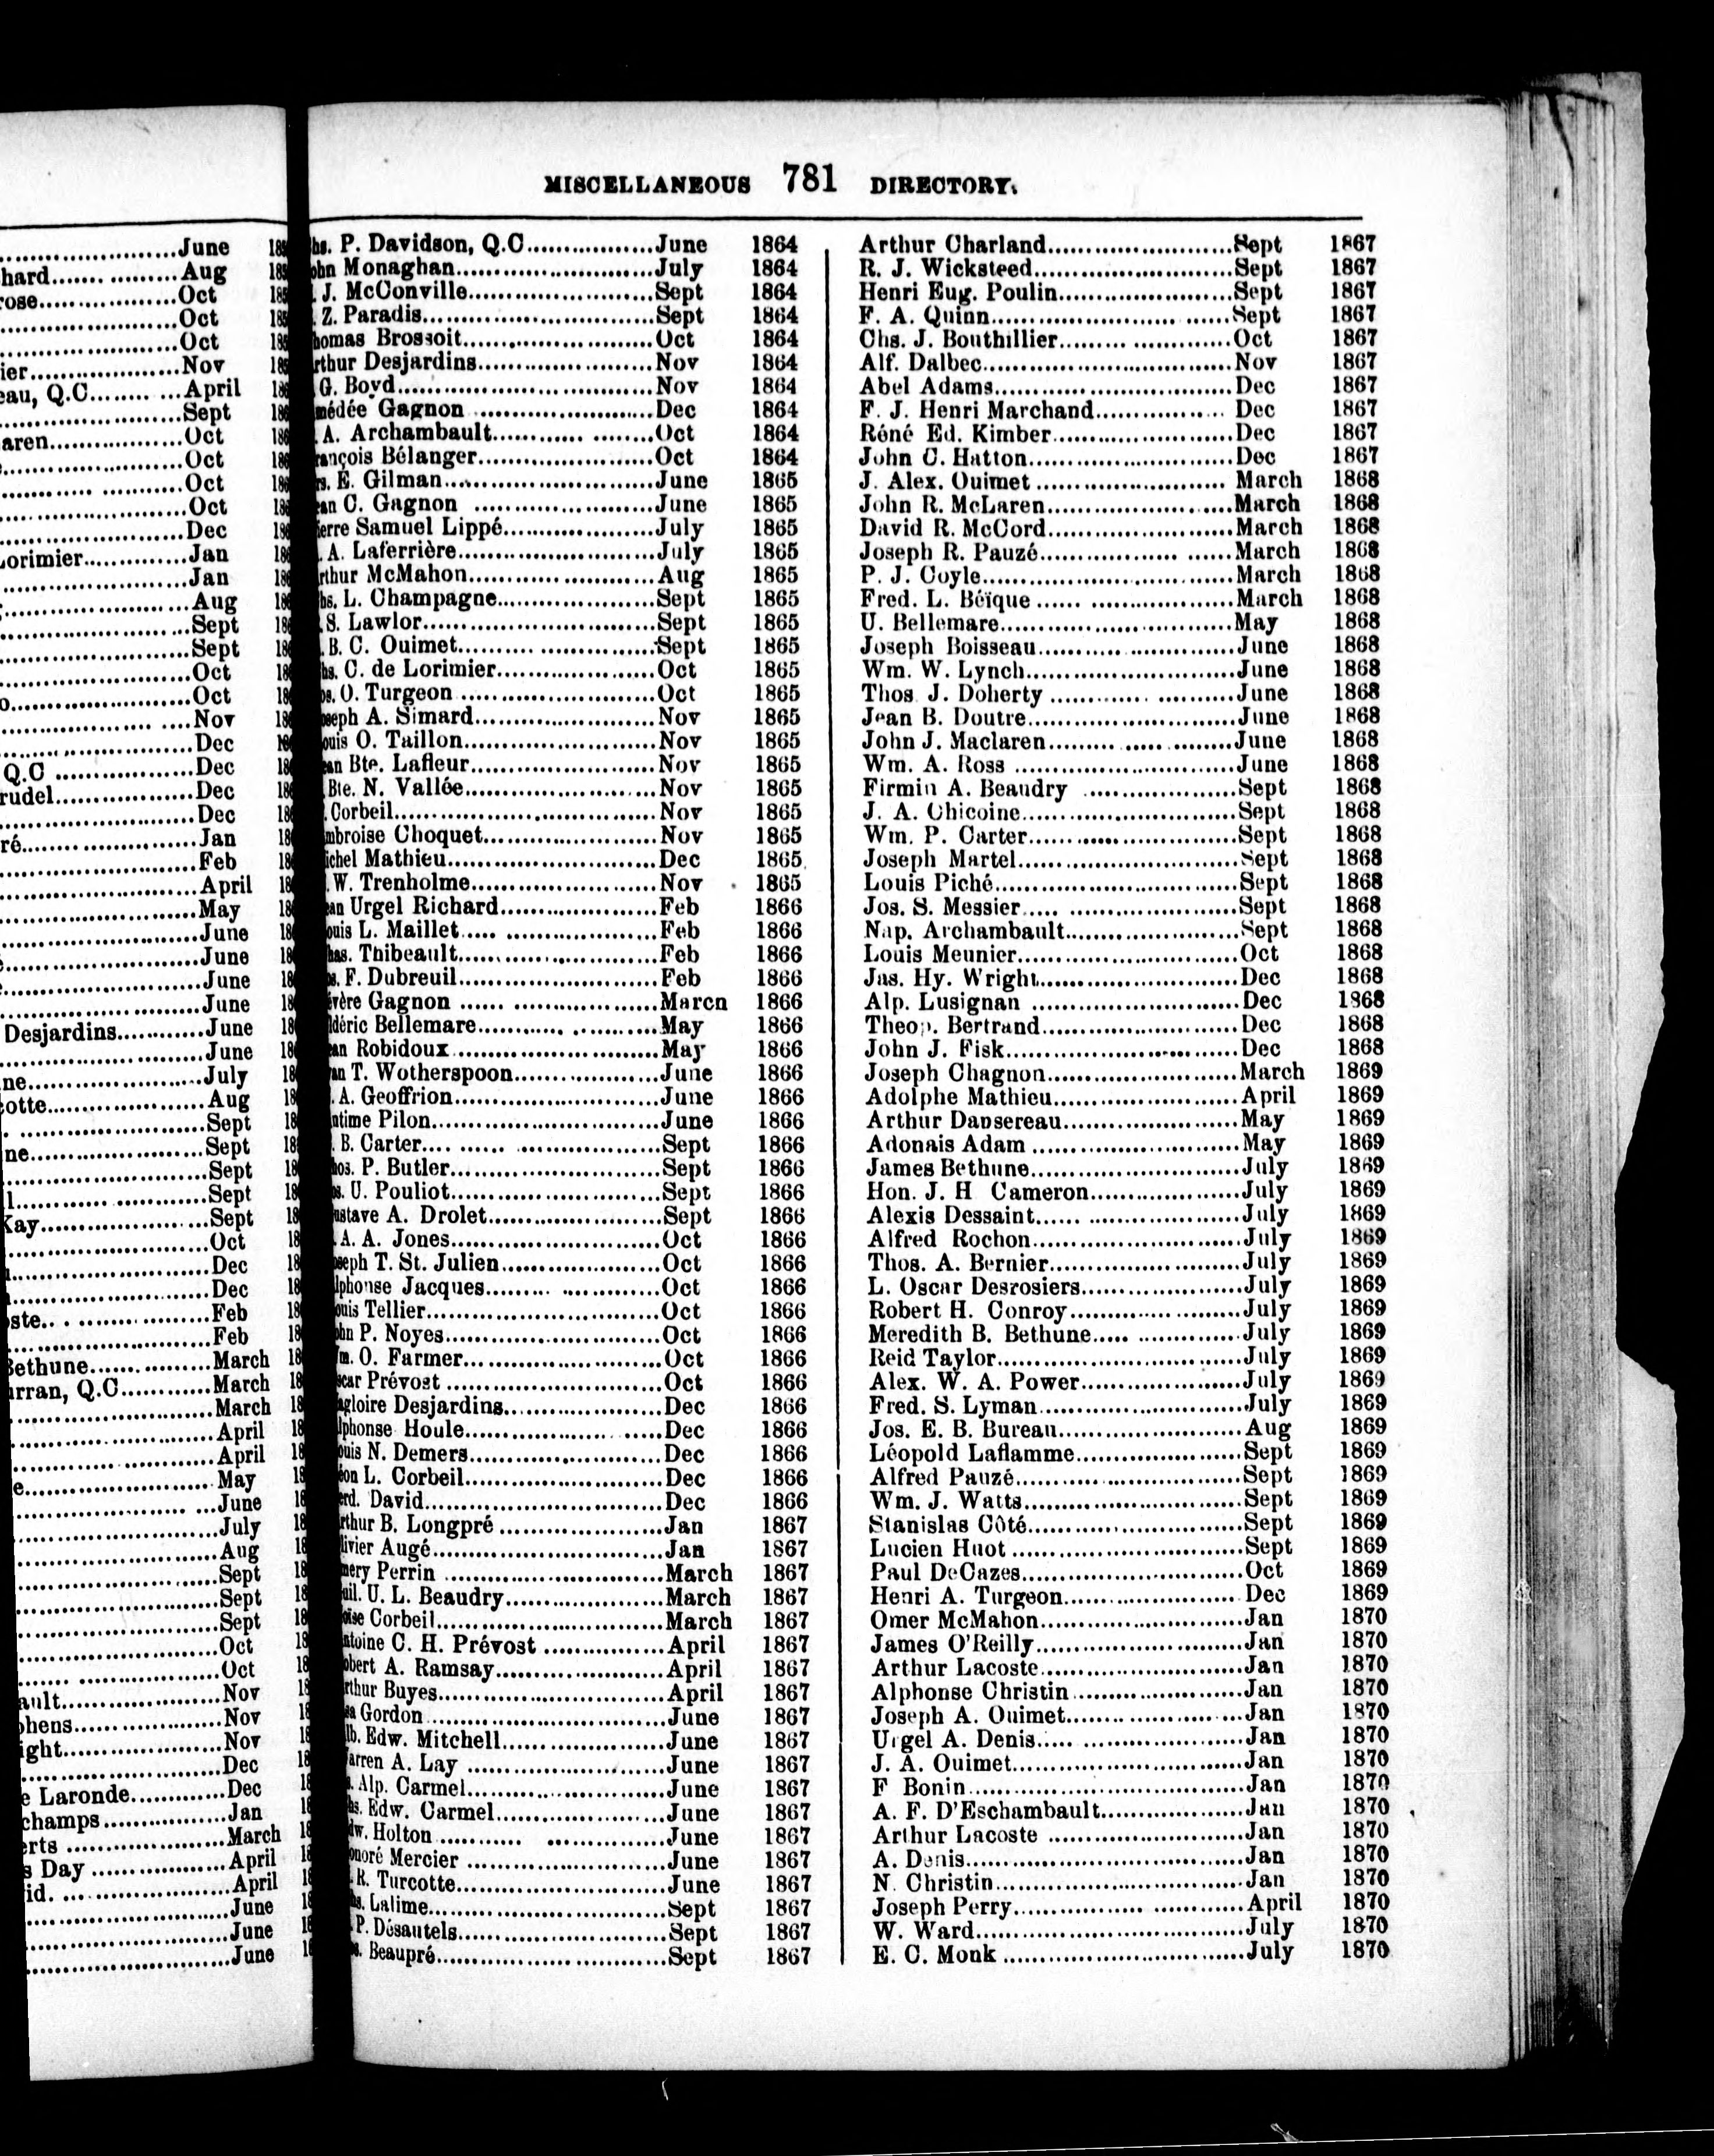 MISCELLANEOUS 781 DIRECTORY.
June
hard Aug
rose Oct
Oct
Oct
ier Nov
eau, Q.C. April
Sept
aren Oct
Oct
Oct
Oct
Dec
orimier Jan
Jan
Aug
Sept
Sept
Oct
Oct
Nov
Dec
Q.C Dec
rudel Dec
Dec
ré Jan
Feb
April
May
June
June
June
June
Desjardins June
June
ne July
otte Aug
Sept
ne Sept
Sept
l Sept
Kay Sept
Oct
Dec
Dec
ste Feb
Feb
Bethune March
rran, Q.C. March
March
April
April
e May
June
July
Aug
Sept
Sept
Sept
Oct
Oct
ault Nov
phens Nov
ight Nov
Dec
e Laronde Dec
champs Jan
erts March
s Day April
id. April
June
June
June
hs. P. Davidson, Q.C. June 1864
ohn Monaghan July 1864
J. McConville Sept 1864
Z. Paradis Sept 1864
homas Brossoit Oct 1864
rthur Desjardins Nov 1864
G. Boyd Nov 1864
médée Gagnon Dec 1864
A. Archambault Oct 1864
rançois Bélanger Oct 1864
rs. E. Gilman June 1865
ean C. Gagnon June 1865
ierre Samuel Lippé July 1865
A. Laferrière July 1865
rthur McMahon Aug 1865
hs. L. Champagne Sept 1865
S. Lawlor Sept 1865
B. C. Ouimet Sept 1865
hs. C. de Lorimier Oct 1865
os. O. Turgeon Oct 1865
oseph A. Simard Nov 1865
ouis O. Taillon Nov 1865
ean Bte. Lafleur Nov 1865
Bte. N. Vallée Nov 1865
Corbeil Nov 1865
mbroise Choquet Nov 1865
ichel Mathieu Dec 1865
W. Trenholme Nov 1865
ean Urgel Richard Feb 1866
ouis L. Maillet Feb 1866
has. Thibeault Feb 1866
os. F. Dubreuil Feb 1866
évère Gagnon March 1866
ldéric Bellemare May 1866
ean Robidoux May 1866
van T. Wotherspoon June 1866
A. Geoffrion June 1866
ntime Pilon June 1866
B. Carter Sept 1866
hos. P. Butler Sept 1866
os. U. Pouliot Sept 1866
ustave A. Drolet Sept 1866
A. A. Jones Oct 1866
oseph T. St. Julien Oct 1866
lphonse Jacques Oct 1866
ouis Tellier Oct 1866
ohn P. Noyes Oct 1866
m. O. Farmer Oct 1866
scar Prévost Oct 1866
agloire Desjardins Dec 1866
lphonse Houle Dec 1866
ouis N. Demers Dec 1866
éon L. Corbeil Dec 1866
erd. David Dec 1866
rthur B. Longpré Jan 1867
livier Augé Jan 1867
mery Perrin March 1867
uil. U. L. Beaudry March 1867
oise Corbeil March 1867
ntoine C. H. Prévost April 1867
obert A. Ramsay April 1867
rthur Buyes April 1867
sa Gordon June 1867
lb. Edw. Mitchell June 1867
arren A. Lay June 1867
Alp. Carmel June 1867
hs. Edw. Carmel June 1867
dw. Holton June 1867
onoré Mercier June 1867
R. Turcotte June 1867
hs. Lalime Sept 1867
P. Désautels Sept 1867
os. Beaupré Sept 1867
Arthur Charland Sept 1867
R. J. Wicksteed Sept 1867
Henri Eug. Poulin Sept 1867
F. A. Quinn Sept 1867
Chs. J. Bouthillier Oct 1867
Alf. Dalbec Nov 1867
Abel Adams Dec 1867
F. J. Henri Marchand Dec 1867
Réné Ed. Kimber Dec 1867
John C. Hatton Dec 1867
J. Alex. Ouimet March 1868
John R. McLaren March 1868
David R. McCord March 1868
Joseph R. Pauzé March 1868
P. J. Coyle March 1868
Fred. L. Béïque March 1868
U. Bellemare May 1868
Joseph Boisseau June 1868
Wm. W. Lynch June 1868
Thos J. Doherty June 1868
Jean B. Doutre June 1868
John J. Maclaren June 1868
Wm. A. Ross June 1868
Firmin A. Beaudry Sept 1868
J. A. Chicoine Sept 1868
Wm. P. Carter Sept 1868
Joseph Martel Sept 1868
Louis Piché Sept 1868
Jos. S. Messier Sept 1868
Nap. Archambault Sept 1868
Louis Meunier Oct 1868
Jas. Hy. Wright Dec 1868
Alp. Lusignan Dec 1868
Theop. Bertrand Dec 1868
John J. Fisk Dec 1868
Joseph Chagnon March 1869
Adolphe Mathieu April 1869
Arthur Dansereau May 1869
Adonais Adam May 1869
James Bethune July 1869
Hon. J. H Cameron July 1869
Alexis Dessaint July 1869
Alfred Rochon July 1869
Thos. A. Bernier July 1869
L. Oscar Desrosiers July 1869
Robert H. Conroy July 1869
Meredith B. Bethune July 1869
Reid Taylor July 1869
Alex. W. A. Power July 1869
Fred. S. Lyman July 1869
Jos. E. B. Bureau Aug 1869
Léopold Laflamme Sept 1869
Alfred Pauzé Sept 1869
Wm. J. Watts Sept 1869
Stanislas Côté Sept 1869
Lucien Huot Sept 1869
Paul DeCazes Oct 1869
Henri A. Turgeon Dec 1869
Omer McMahon Jan 1870
James O'Reilly Jan 1870
Arthur Lacoste Jan 1870
Alphonse Christin Jan 1870
Joseph A. Ouimet Jan 1870
Urgel A. Denis Jan 1870
J. A. Ouimet Jan 1870
F Bonin Jan 1870
A. F. D'Eschambault Jan 1870
Arthur Lacoste Jan 1870
A. Denis Jan 1870
N. Christin Jan 1870
Joseph Perry April 1870
W. Ward July 1870
E. C. Monk July 1870